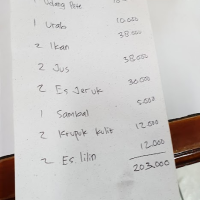 1 Udang Pete
1 Urab 10.000
2 Ikan 38.000
2 Jus 38.000
2 Es Jeruk 30.000
1 Sambal 5.000
2 Krupuk kulit 12.000
2 Es. lilin 12.000
203.000